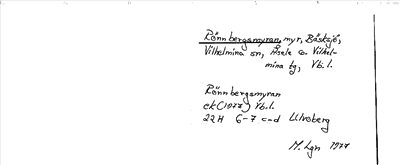 Rönnbergsmyran, myr, Bäsksjö,
Vilhelmina sn, Åsele o. Vilhel-
mina tg, Vb.l.
Rönnbergsmyran
ek (1977) Vb.l.
22H 6-7 c-d Ulvoberg
M. Lgn 1977